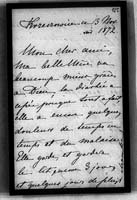 13 Nov
1872
Mon cher ami,
Ma belle mère va
beaucoup mieux grâce
à Dieu, la diarrhée a
cessé presque tout à fait
elle a encore quelques
douleurs de temps en
temps et du malaise.
Elle garde et gardera
le lit encore 3 jours
et quelques jours de plus